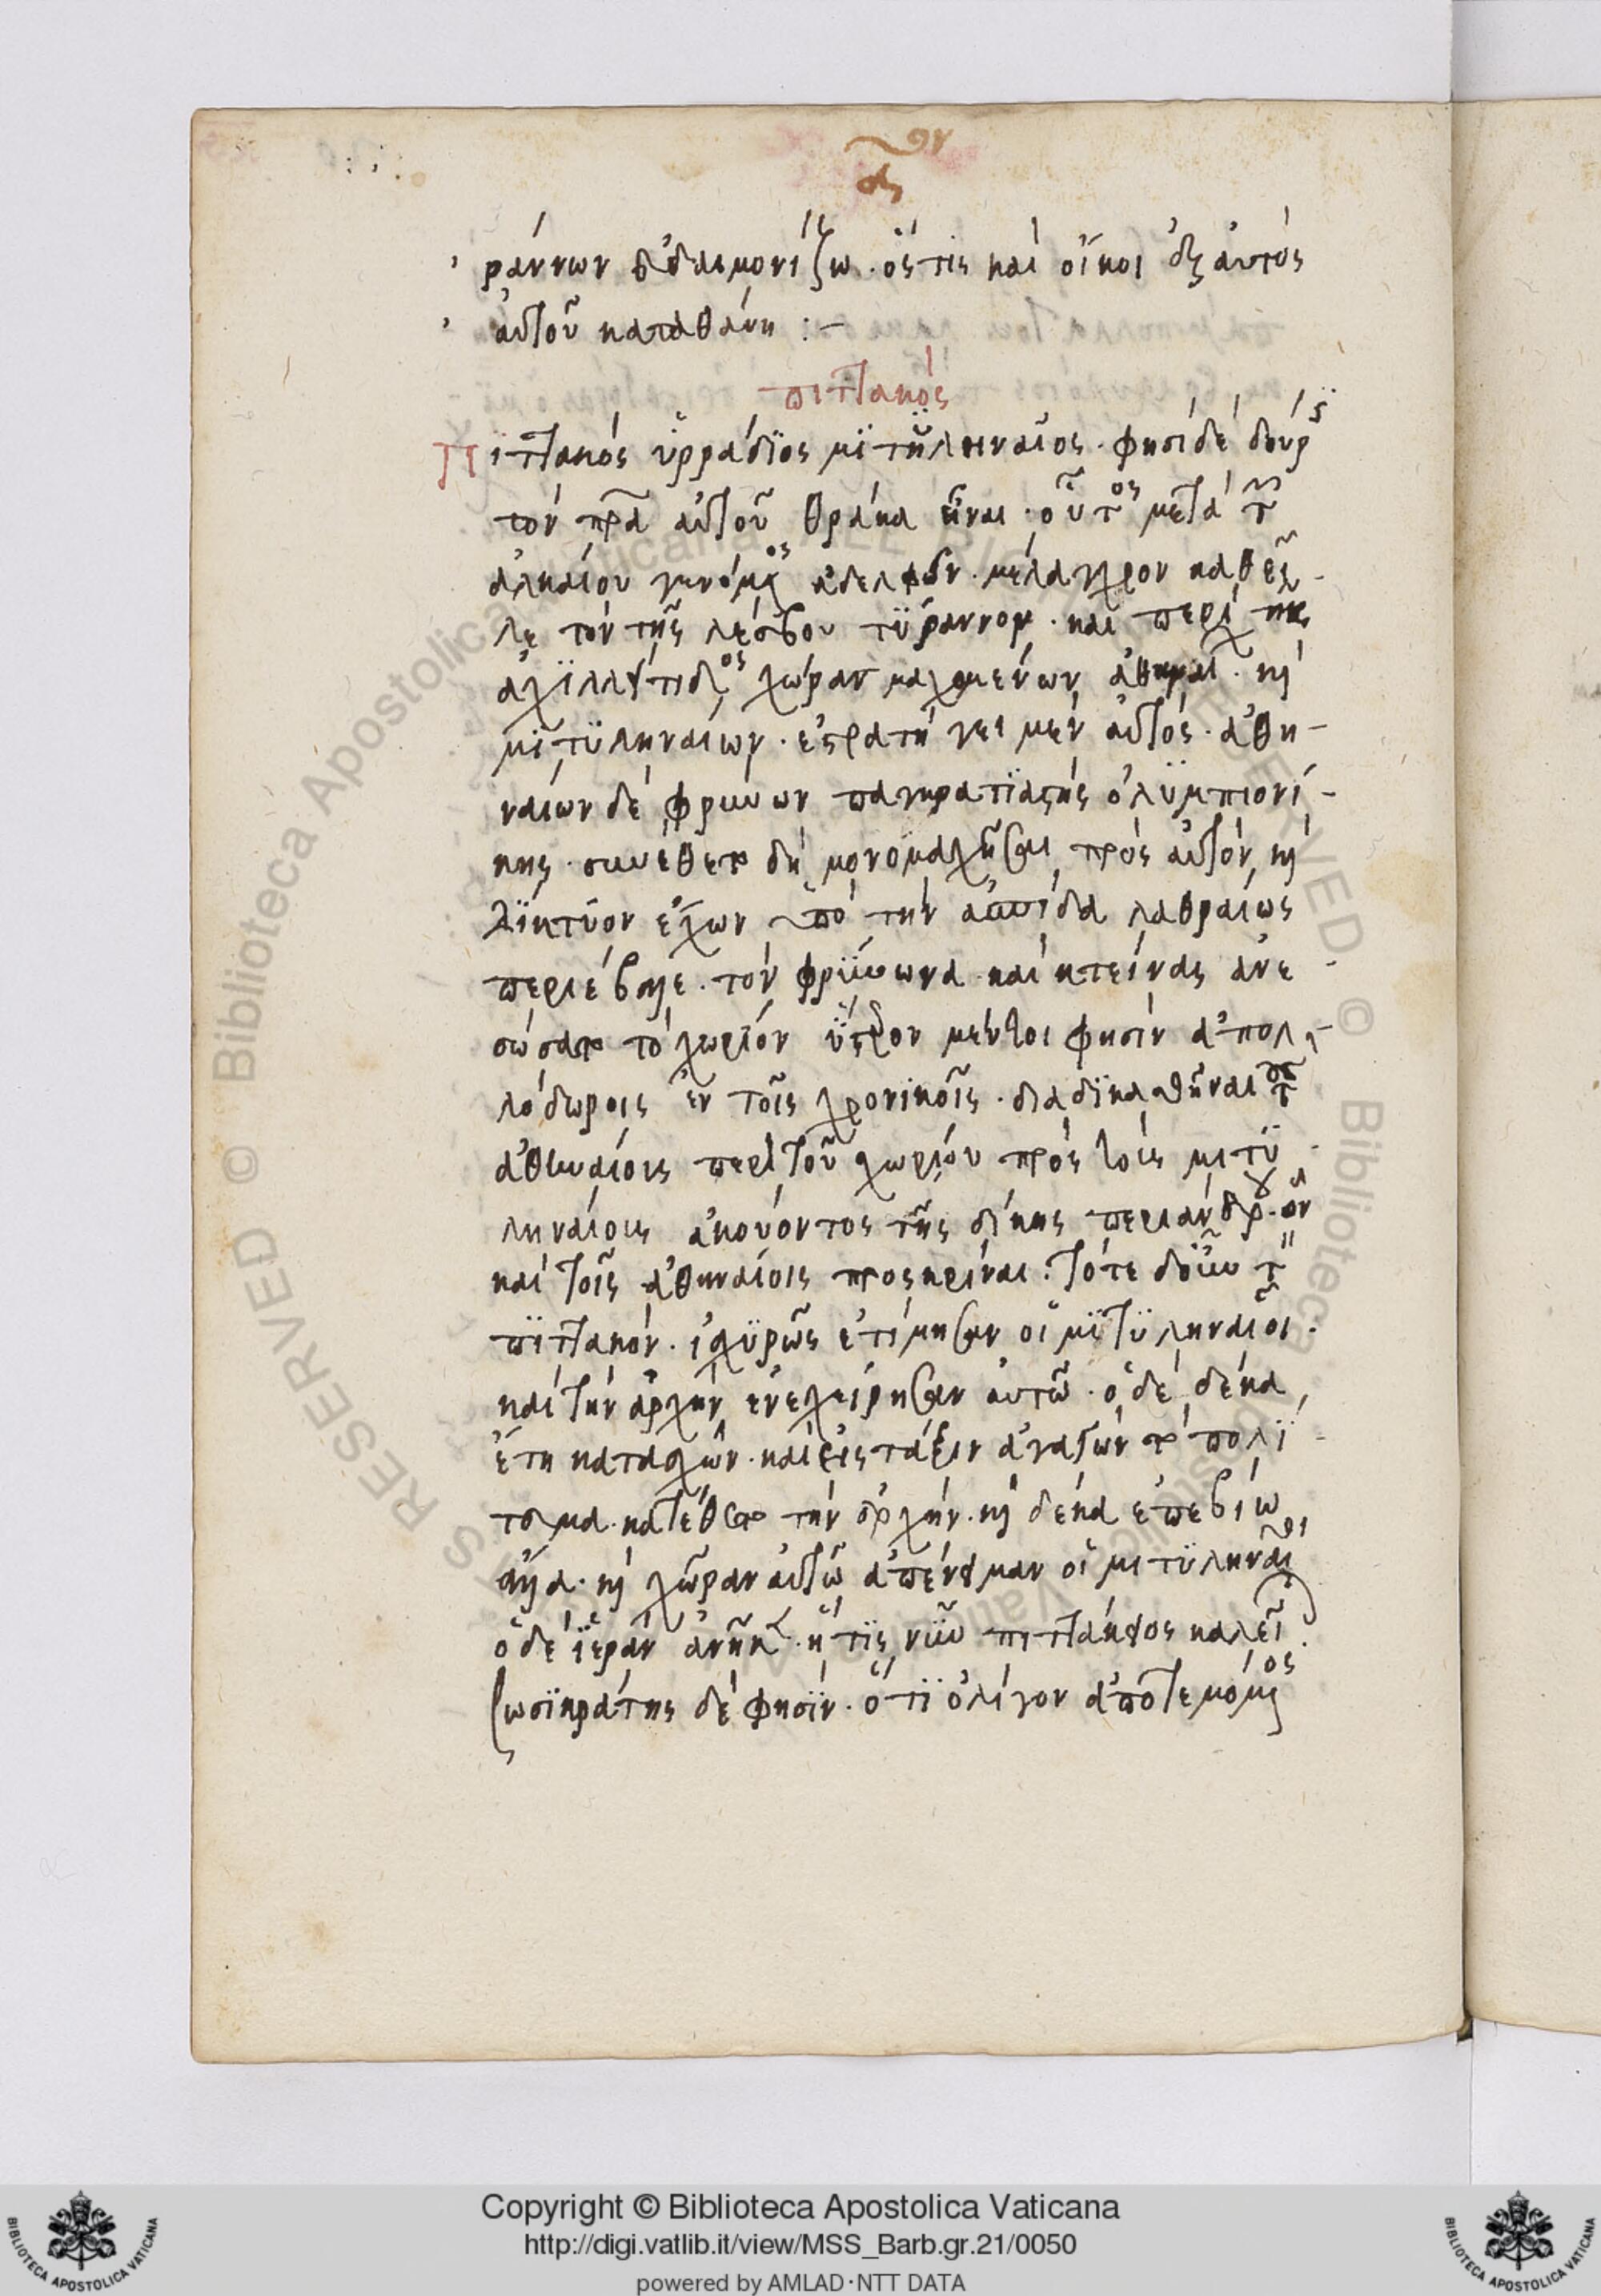 ράννων εὐδαιμονίζω· ὅς τις καὶ οἴκοι ἐξ αὐτὸς
αὐτοῦ καταθάνη :–
πιττακός
Πϊττακός ὑρραδϊος μϊτϋληναῖος· φησὶ δέ δούρϊς
τὸν πρα αὐτοῦ θράκα εἶναι· οὗτος μετὰ τῶν
ἀλκαίου γενόμενος ἀδελφῶν· μέλαγχρον καθεῖ
λε τὸν τῆς λέσβου τϋράννον· καὶ περὶ τῆς
ἀχϊλλείτιδος χώραν μαχομένων ἀθηναίων· κὶ
μϊτϋληναίων· ἐστρατήγει μὲν αὐτός· ἀθη–
ναίων δὲ φρύνων παγκρατϊαστὴς ὀλϋμπιονί–
κης· συνέθετο δὴ μονομαχῆσαι πρὸς αὐτόν, κὶ
δϊκτϋον ἔχων ὑπὸ τὴν ἀσπίδα λαθραίως
περιέβαλε· τὸν φρύνωνα· καὶ κτείνας ἀνε–
σώσατο τὸ χωρϊόν ὕστερον μέντοι φησὶν ἀπολ–
λόδωρος ἐν τοῖς χρονικοῖς· διαδϊκασθῆναι τοὺς
ἀθηναίους περὶ τοῦ χωρίου πρὸς τοὺς μιτϋ–
ληναίους ἀκούοντος τῆς δίκης περιάνδρου· ὃν
καὶ τοῖς ἀθηναίοις προσκρίναι: τότε δ οὖν τὸν
πϊττακόν· ἰσχϋρῶς ἐτίμησαν οἱ μϊτϋληναῖοι·
καὶ τὴν ἀρχὴν ἐνεχείρησαν αὐτῶ· ὁ δὲ δέκα
ἔτη κατασχὼν· καὶ εἰς τάξιν ἀγαγὼν τὸ πολί–
τευμα· κατέθετο τὴν ἀρχήν· κὶ δέκα ἐπεβίω
ἄλλα· κὶ χῶραν αὐτῶ ἀπένειμαν οἱ μιτϋληναῖοι
ὁ δὲ ἱερὰν ἀνῆκε· ἥτϊς νῦν πιττάκειος καλεῖται·
Σωσϊκράτης δέ φησϊν· ὅτϊ ὀλίγον ἀποτεμόμενος
Copyright © Biblioteca Apostolica Vaticana
http://digi.vatlib.it/view/MSS_Barb.gr.21/0050
powered by AMLAD·NTT DATA